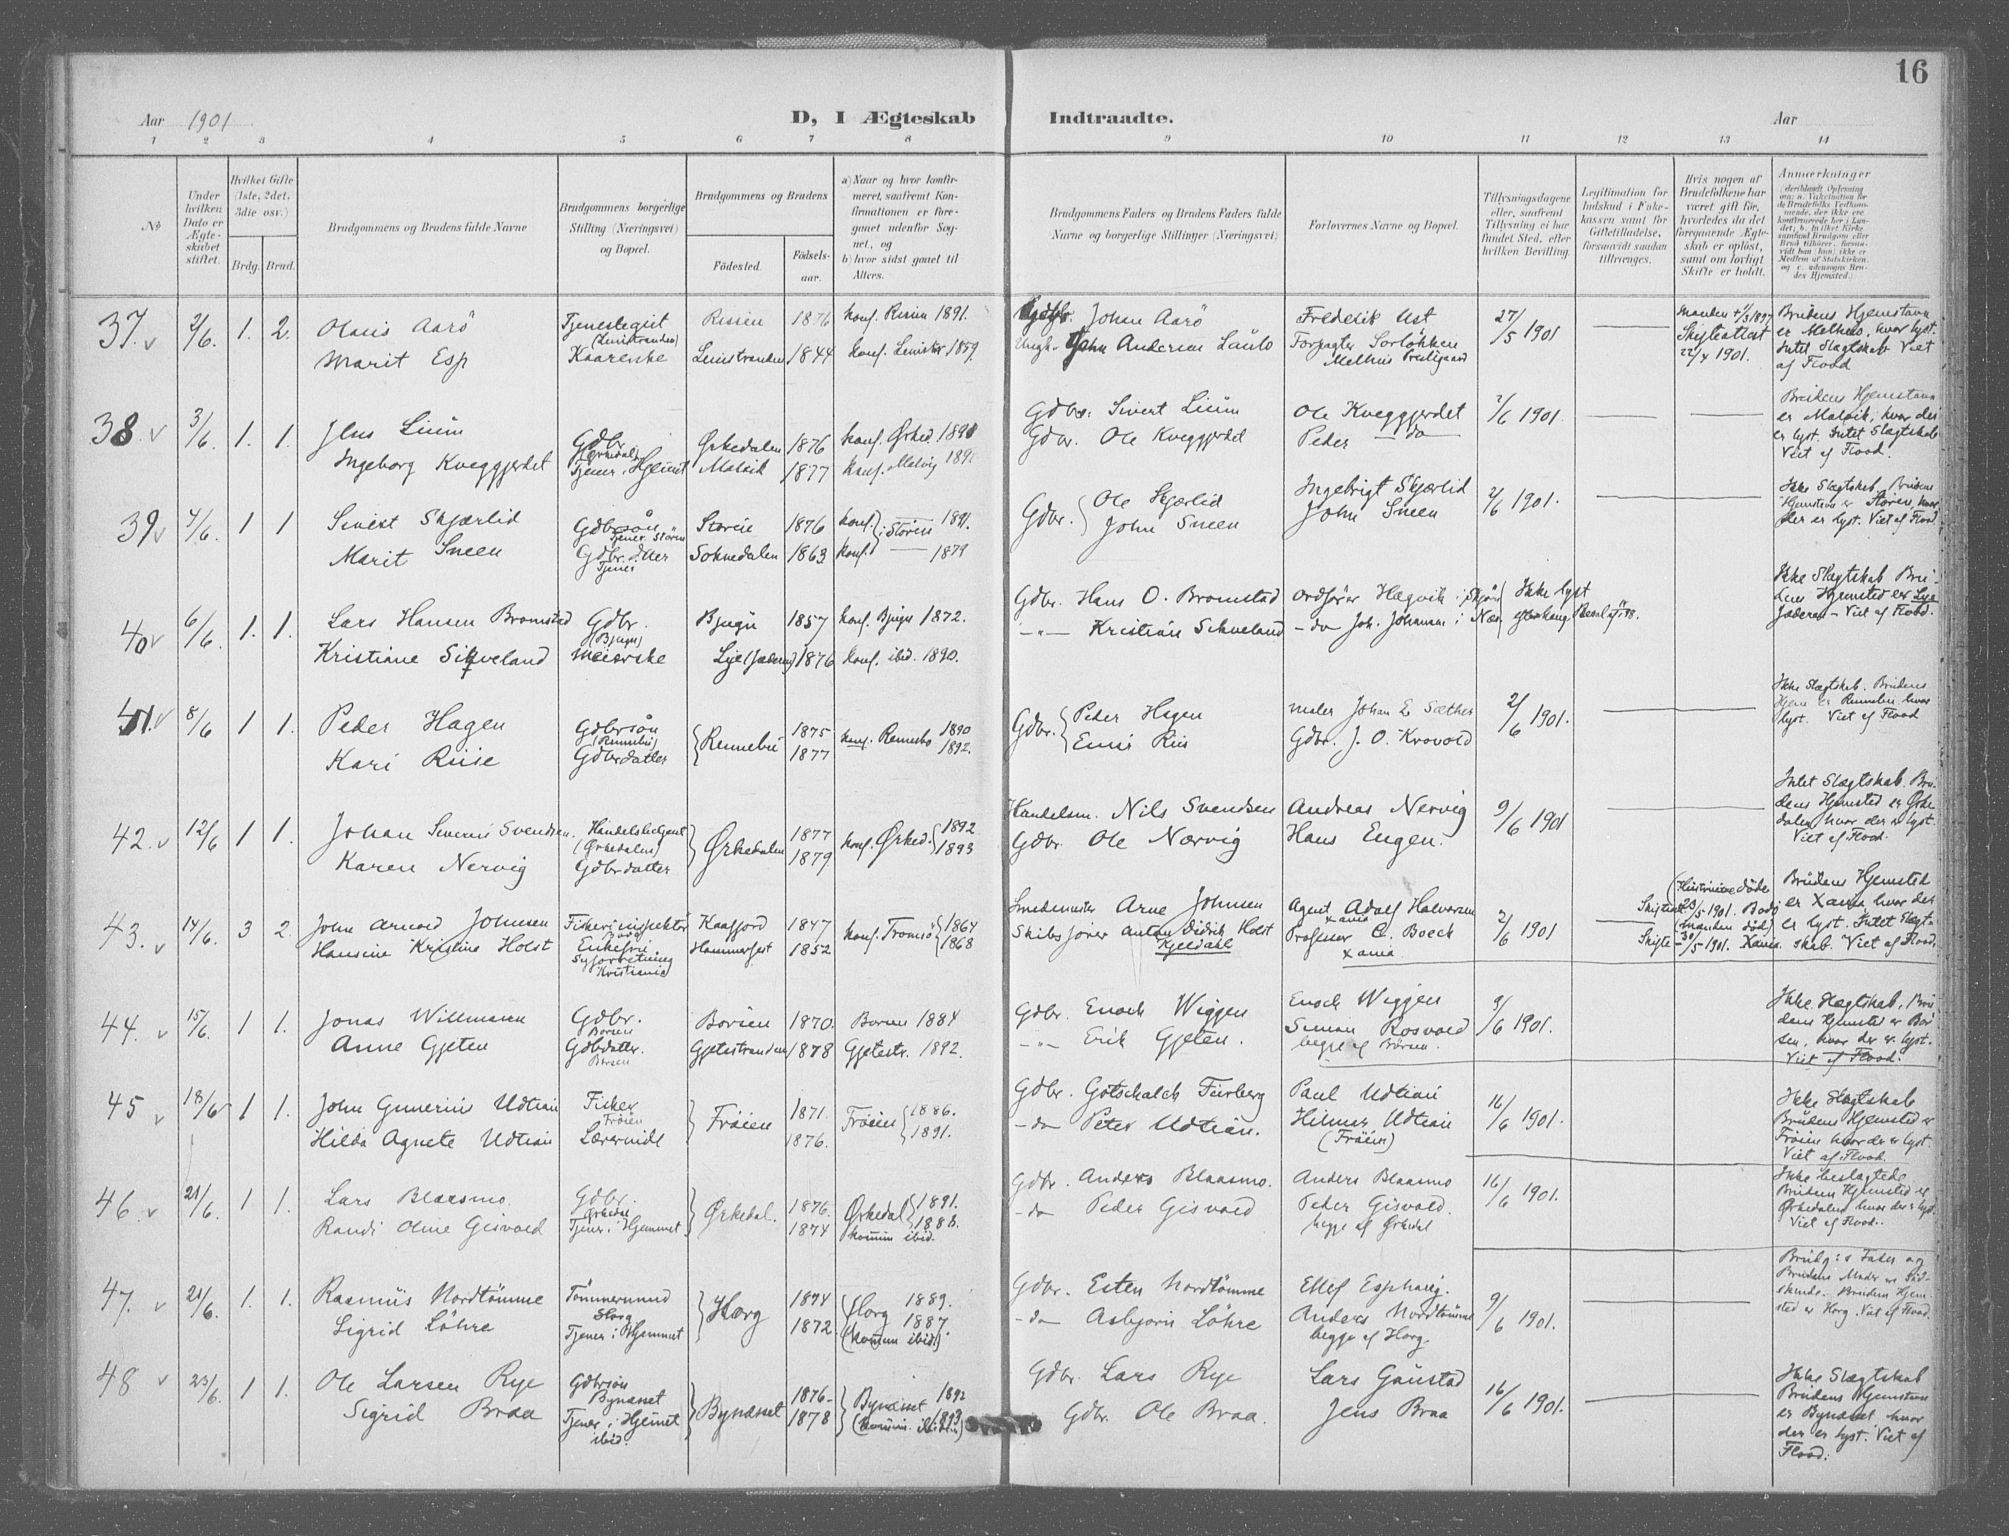 16
Aar 1901
D, I Ægteskab Indtraadte.
Aar
1 2 3 4 5 6 7 8 9 10 11 12 13 14
No
Under hvilken Dato er Ægteskabet stiftet.
Hvilket Gifte (1ste, 2det, 3die osv.)
Brdg. Brud.
Brudgommens og Brudens fulde Navne
Brudgommens borgerlige Stilling (Næringsvei) og Bopæl.
Brudgommens og Brudens
Födested.
Födselsaar.
a) Naar og hvor konfirmeret, saafremt Konfirmationen er foregaaet udenfor Sognet, og
b) hvor sidst gaaet til Alters.
Brudgommens Faders og Brudens Faders fulde Navne og borgerlige Stillinger (Næringsvei)
Forlovernes Navne og Bopæl.
Tillysningsdagene eller, saafremt Tillysning ei har fundet Sted, efter hvilken Bevilling.
Legitimation for Indskud i Enkekassen samt for Giftetilladelse, forsaavidt saadan tiltrænges.
Hvis nogen af Brudefolkene har været gift för, hvorledes da det foregaaende Ægteskab er oplöst, samt om lovligt Skifte er holdt.
Anmærkninger
37. 2/6. 1. 2. Olaus Aarö Tjenestegut (Leinstranden) Rissen 1876 konf. Rissen 1891. Johan Aarö Frederik Ust 27/5 1901 Manden † 1/3 1897 Brudens Hjemstavn
Marit Esp Kaarenske Leinstranden 1844 konf. Leinstr 1859. Andersen Forpagter Sorløkken Skifteattest er Melhus, hvor lyst.
Melhus Prestegaard 22/4 1901. Intet Slægtskab Viet
af Flood
38 3/6. 1. 1. Jens Lium Gdbr. Ørkedalen Ørkedalen 1876 konf. Ørked. 1890 Gdbr. Sivert Lium Ole Kveggjerdet 2/6 1901. Brudens Hjemstavn
Ingeborg Kveggjerdet Tjener i Hjemmet Malvik 1877 konf. Malvig Gdbr. Ole Kveggjerdet Peder — do er Malvik, hvor der
er lyst. Intet Slægtskab
Viet af Flood.
39 4/6. 1 1 Sivert Skjærlid Gdbrsön Stören 1876 konf. Stören 1891. Gdbr. Ole Skjærlid Ingebrigt Skjærlid 2/6 1901. Ikke Slægtskab. Brudens
Marit Sneen Gdbr.dtter Tjener Soknedalen 1863 konf. — 1879 John Sneen John Sneen Hjemstavn er Stören, hvor
der er lyst. Viet af Flood
40 6/6. 1. 1. Lars Hansen Bromstad Gdbr. (Bjugn) Bjugn 1857 konf. Bjugn 1872. Gdbr. Hans O. Bromstad Ordförer Hægvik i Ikke lyst Ikke Slægtskab Bru-
Kristiane Sikveland Meierske Lye (Jæderen) 1876 konf. ibid. 1890. —"— Kristian Sikveland — do Joh. Johansen i dens Hjemsted er Lye
Jæderen — Viet af Flood.
41. 8/6 1 1. Peder Hagen Gdbrsön (Rennebu) Rennebu 1875 konf. Rennebo 1890 Gdbr. Peder Hagen Maler Johan E Sæther 2/6 1901. Ikke Slægtskab. Brudens
Kari Riise Gdbrdatter 1877 1892. Riis Gdbr. J. O. Krovold Hjem er Rennebu hvor
lyst. Viet af Flood
42. 12/6 1 1. Johan Severin Svendsen. Handelsbetjent (Ørkedalen) Ørkedalen 1877 konf. Ørked. 1892. Handelsm. Nils Svendsen Andreas Nervig 9/6 1901 Intet Slægtskab. Bru-
Karen Nervig Gdbrdatter 1879. 1893 Gdbr. Ole Nærvig Hans Engen. dens Hjemsted er Ørke
dalen hvor der er lyst.
Viet af Flood.
43. 14/6. 3 2. John Arnord Johnsen Fiskeriinspektör Bodö Kaafjord 1847 konf. Tromsö 1864 Smedmester Arne Johnsen Agent Adolf Halvorsen Xania 2/6 1901 (Hustruen död) Skifteatt. 29/5 1901. Bodö Brudens Hjemsted
Hansine Kristine Holst Enkefru Syforretning Kristiania Hammerfest 1852 1868 Skibsförer Anton Didrik Holst Kjeldahl Professor C. Boeck Xania (Manden död) Skifte 30/5 1901. Xania er Xania hvor der
er lyst. Intet Slægt-
skab. Viet af Flood.
44. 15/6. 1 1. Jonas Willmann Gdbr. Börsen Börsen 1870. Börsen 1884 Gdbr. Enoch Wiggen Enoch Wiggen 9/6 1901. Ikke Slægtskab. Bru
Anne Gjeten Gdbdatter. Börsen Gjetestranden 1878 Gjetestr. 1892. —"— Erik Gjeten. Simon Rosvold dens Hjemsted er Bör
begge af Börsen. sen, hvor der er lyst.
Viet af Flood.
45 18/6 1 1. John Gunerius Udtian Fisker Fröien Fröien 1871. Fröien 1886. Gdbr. Gotschalck Furberg Paul Udtian 16/6 1901. Ikke Slægtskab
Hilda Agnete Udtian Lærerinde 1876. 1891. — do Peter Udtian. Hilmar Udtian Brudens Hjemsted er
(Fröien) Fröien hvor der er lyst.
Viet af Flood.
46. 21/6. 1 1. Lars Blaasmo. Gdbr. Ørkedal Ørkedal. 1876. Ørkedal 1891. Gdbr. Anders Blaasmo. Anders Blaasmo 16/6 1901. Ikke beslægtede
Randi Oline Gisvold Tjener i Hjemmet 1874 komm ibid. — do Peder Gisvold Peder Gisvold. Brudens Hjemsted er
begge af Ørkedal Ørkedalen hvor der er lyst.
Viet af Flood.
47. 21/6. 1. 1. Rasmus Nordtömme Tömmermand Horg Horg 1874 Horg 1889. Gdbr. Esten Nordtömme Ellef Esphaug. 9/6 1901. Brudg:s Fader og
Sigrid Löhre Tjener i Hjemmet 1872. 1887. (komm ibid.) — do Asbjörn Löhre Anders Nordtömme Brudens Moder er Söd-
begge af Horg. skende. Brudens Hjem-
sted er Horg. Viet af Flood.
48 23/6. 1 1. Ole Larsen Rye Gdbrsön Bynæsset Bynæsset 1876 Bynæsset 1892 Gdbr. Lars Rye Lars Gaustad 16/6 1901. Ikke Slægtskab
Sigrid Braa Tjener i Hjemmet ibid. 1878 1893 Gdbr. Ole Braa. Jens Braa Brudens Hjemstavn
er Bynæsset hvor
der er lyst. Viet af
Flood.